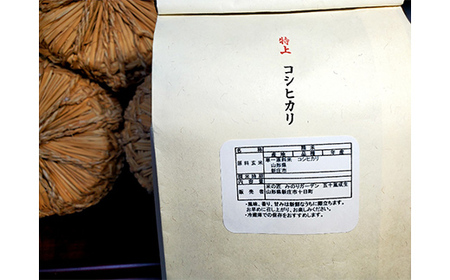 特上
コシヒカリ
名称 精米
産地 品種 年産
原料玄米 単一原料米 コシヒカリ
山形県
新庄市
内容量
精米時期
販売者 米の匠 みのりガーデン 五十嵐成生
山形県新庄市十日町
・風味、香り、甘みは新鮮なうちに際立ちます。
お早めに召し上がり、お楽しみください。
・冷蔵庫での保存をおすすめします。